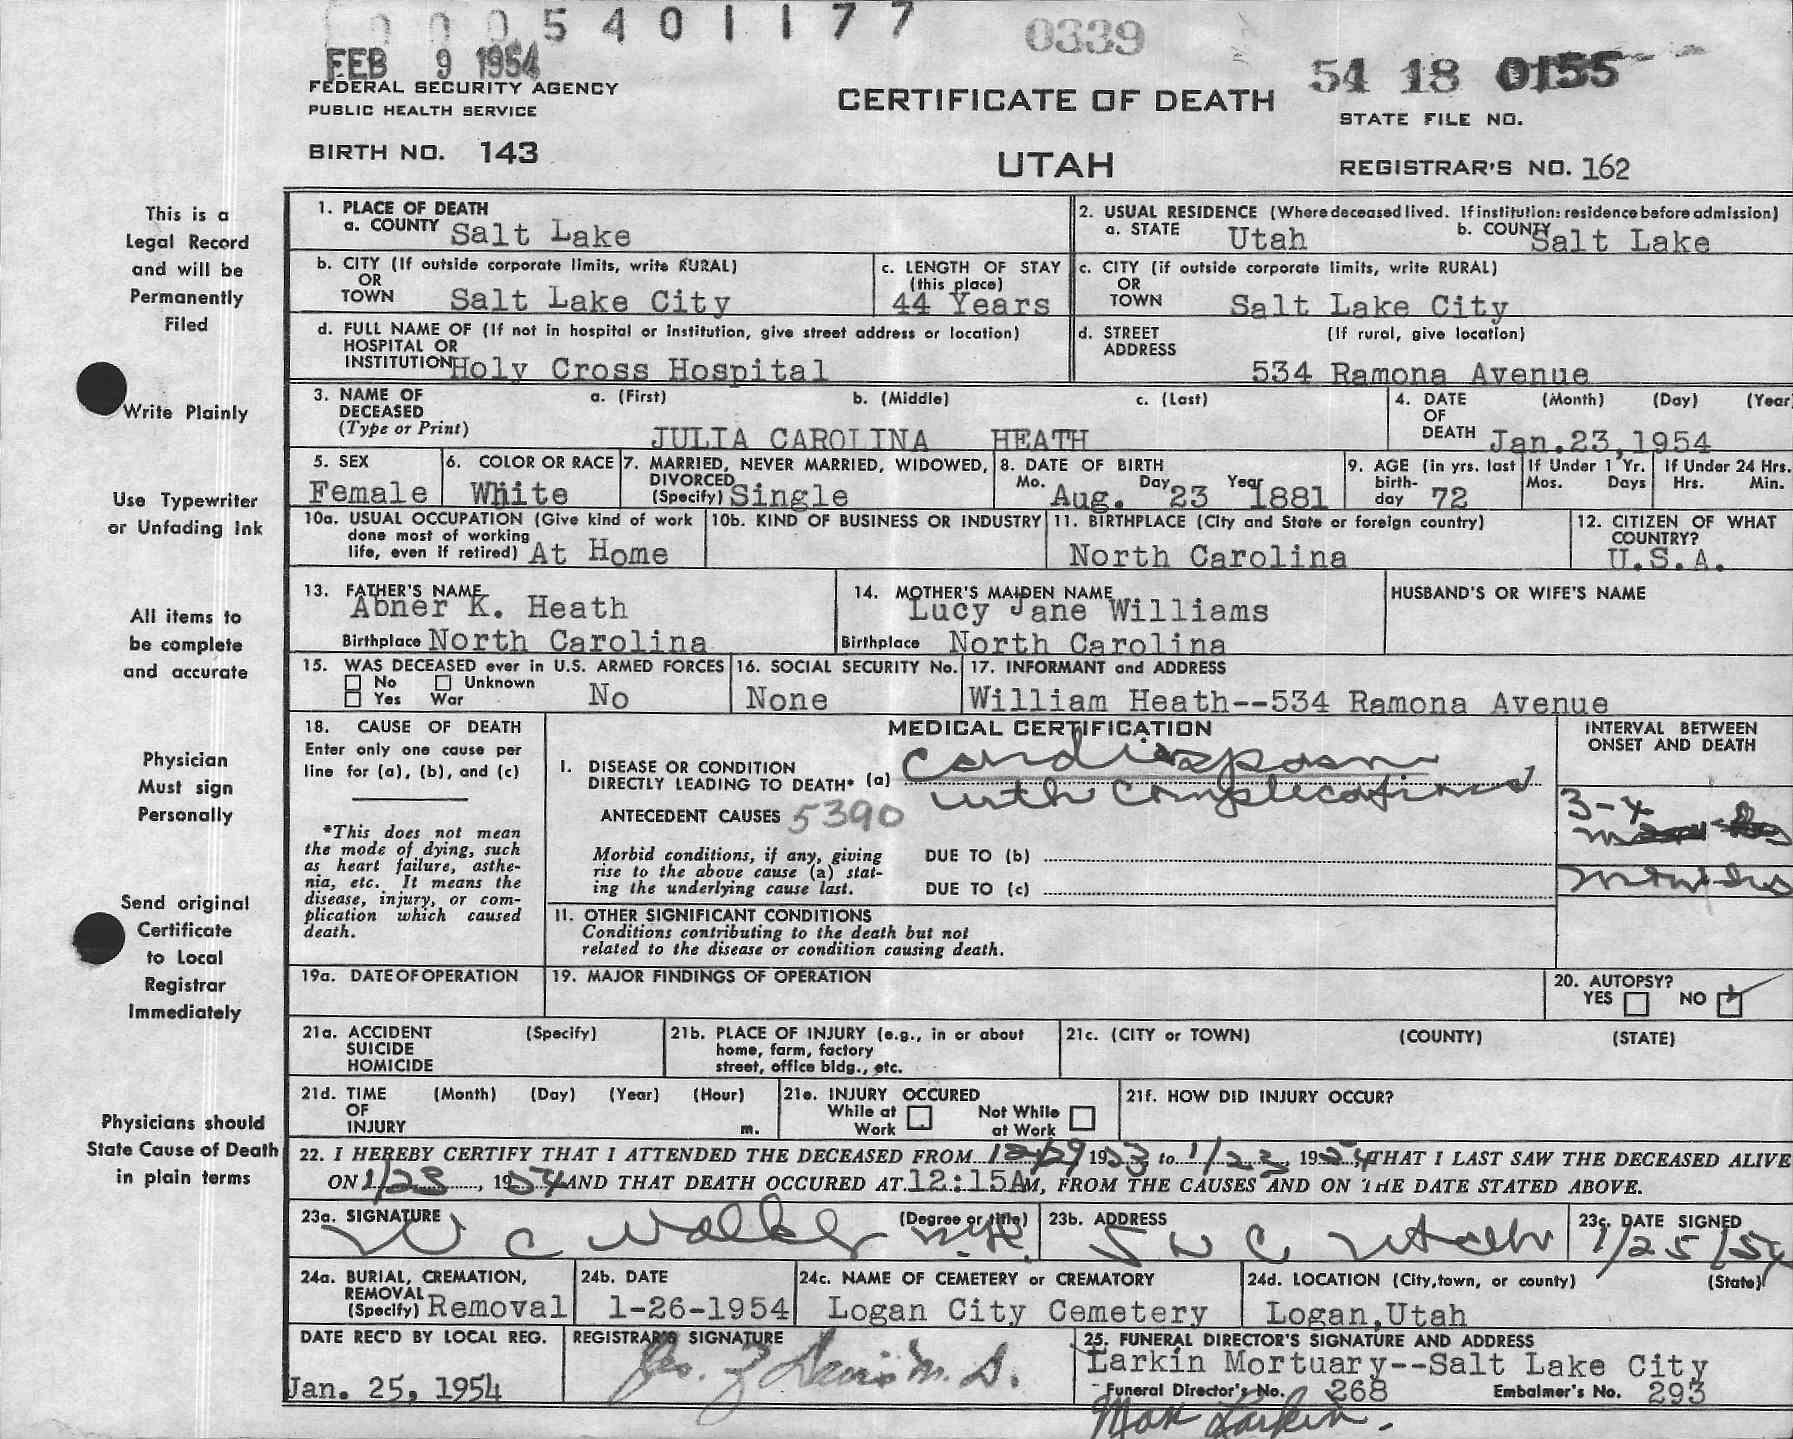 0005401177
0339
FEB 9 1954
54 18 0155
FEDERAL SECURITY AGENCY
PUBLIC HEALTH SERVICE
CERTIFICATE OF DEATH
STATE FILE NO.
BIRTH NO. 143
UTAH
REGISTRAR'S NO. 162
This is a
Legal Record
and will be
Permanently
Filed
Write Plainly
Use Typewriter
or Unfading Ink
All items to
be complete
and accurate
Physician
Must sign
Personally
Send original
Certificate
to Local
Registrar
Immediately
Physicians should
State Cause of Death
in plain terms
1. PLACE OF DEATH
a. COUNTY Salt Lake
2. USUAL RESIDENCE (Where deceased lived. If institution: residence before admission)
a. STATE Utah b. COUNTY Salt Lake
b. CITY (If outside corporate limits, write RURAL)
OR
TOWN Salt Lake City
c. LENGTH OF STAY
(this place)
44 Years
c. CITY (if outside corporate limits, write RURAL)
OR
TOWN Salt Lake City
d. FULL NAME OF (If not in hospital or institution, give street address or location)
HOSPITAL OR
INSTITUTION Holy Cross Hospital
d. STREET (If rural, give location)
ADDRESS
534 Ramona Avenue
3. NAME OF a. (First) b. (Middle) c. (Last)
DECEASED
(Type or Print) JULIA CAROLINA HEATH
4. DATE (Month) (Day) (Year
OF
DEATH Jan.23,1954
5. SEX
Female
6. COLOR OR RACE
White
7. MARRIED, NEVER MARRIED, WIDOWED,
DIVORCED
(Specify) Single
8. DATE OF BIRTH
Mo. Aug. Day 23 Year 1881
9. AGE (in yrs. last
birth-
day 72
If Under 1 Yr.
Mos. Days
If Under 24 Hrs.
Hrs. Min.
10a. USUAL OCCUPATION (Give kind of work
done most of working
life, even if retired) At Home
10b. KIND OF BUSINESS OR INDUSTRY
11. BIRTHPLACE (City and State or foreign country)
North Carolina
12. CITIZEN OF WHAT
COUNTRY?
U.S.A.
13. FATHER'S NAME
Abner K. Heath
Birthplace North Carolina
14. MOTHER'S MAIDEN NAME
Lucy Jane Williams
Birthplace North Carolina
HUSBAND'S OR WIFE'S NAME
15. WAS DECEASED ever in U.S. ARMED FORCES
No Unknown
Yes War No
16. SOCIAL SECURITY No.
None
17. INFORMANT and ADDRESS
William Heath--534 Ramona Avenue
18. CAUSE OF DEATH
Enter only one cause per
line for (a), (b), and (c)
*This does not mean
the mode of dying, such
as heart failure, asthe-
nia, etc. It means the
disease, injury, or com-
plication which caused
death.
MEDICAL CERTIFICATION
I. DISEASE OR CONDITION
DIRECTLY LEADING TO DEATH* (a) Cardiospasm
with complications
ANTECEDENT CAUSES 5390
Morbid conditions, if any, giving
rise to the above cause (a) stat-
ing the underlying cause last.
DUE TO (b)
DUE TO (c)
INTERVAL BETWEEN
ONSET AND DEATH
3-4
months
11. OTHER SIGNIFICANT CONDITIONS
Conditions contributing to the death but not
related to the disease or condition causing death.
19a. DATE OF OPERATION
19. MAJOR FINDINGS OF OPERATION
20. AUTOPSY?
YES NO
21a. ACCIDENT (Specify)
SUICIDE
HOMICIDE
21b. PLACE OF INJURY (e.g., in or about
home, farm, factory
street, office bldg., etc.
21c. (CITY or TOWN) (COUNTY) (STATE)
21d. TIME (Month) (Day) (Year) (Hour)
OF
INJURY m.
21e. INJURY OCCURED
While at Work Not While at Work
21f. HOW DID INJURY OCCUR?
22. I HEREBY CERTIFY THAT I ATTENDED THE DECEASED FROM 12/29 1953, to 1/23, 1954, THAT I LAST SAW THE DECEASED ALIVE
ON 1/23, 1954 AND THAT DEATH OCCURED AT 12:15AM, FROM THE CAUSES AND ON THE DATE STATED ABOVE.
23a. SIGNATURE (Degree or title)
W C Walker M.D.
23b. ADDRESS
S L C Utah
23c. DATE SIGNED
1/25/54
24a. BURIAL, CREMATION,
REMOVAL
(Specify) Removal
24b. DATE
1-26-1954
24c. NAME OF CEMETERY or CREMATORY
Logan City Cemetery
24d. LOCATION (City, town, or county) (State)
Logan,Utah
DATE REC'D BY LOCAL REG.
Jan. 25, 1954
REGISTRAR'S SIGNATURE
Geo. Z Davis M.D.
25. FUNERAL DIRECTOR'S SIGNATURE AND ADDRESS
Larkin Mortuary--Salt Lake City
Funeral Director's No. 268 Embalmer's No. 293
Max Larkin.